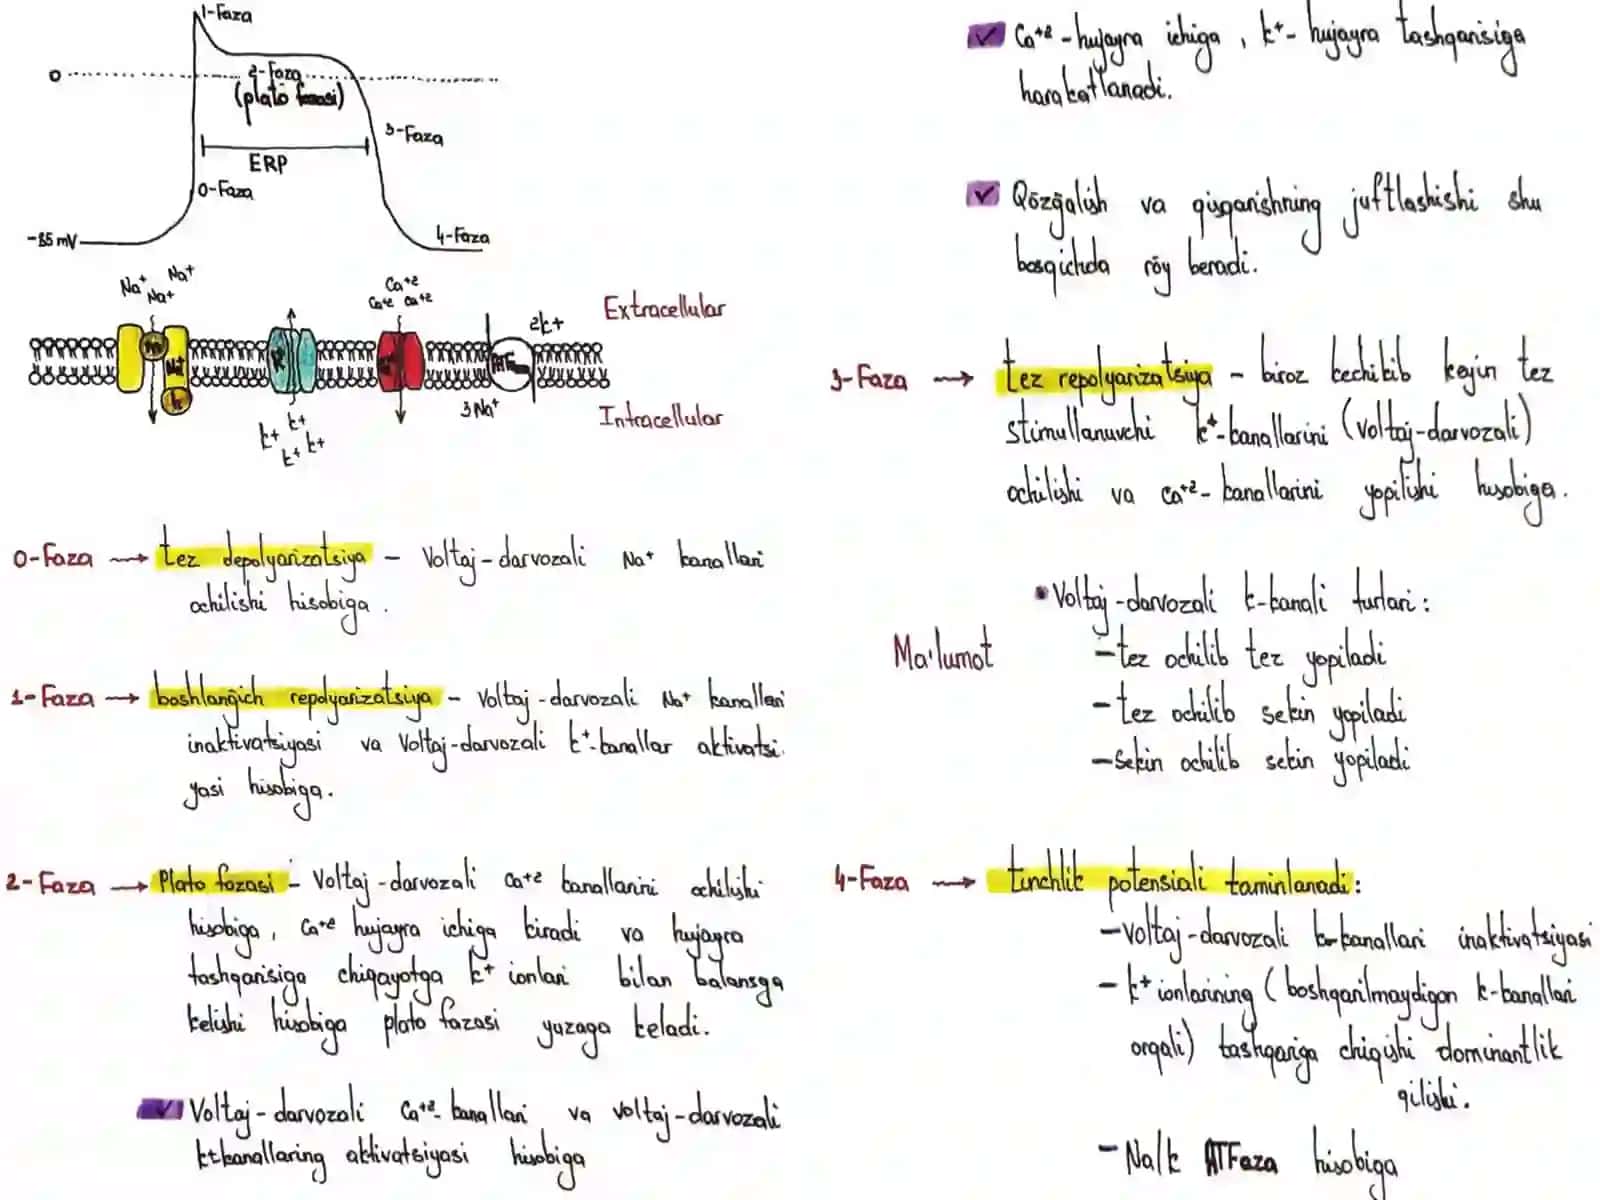 1-Faza
0
2-Faza
(plato fazasi)
3-Faza
ERP
0-Faza
-85 mV
4-Faza
Na+ Na+
Na+
Ca+2
Ca+2 Ca+2
Extracellular
2k+
m
Na+
h
K+
3Na+
Intracellular
k+ k+
k+ k+
0-Faza → tez depolyarizatsiya – Voltaj-darvozali Na+ kanallari
ochilishi hisobiga.
1-Faza → boshlanğich repolyarizatsiya – Voltaj-darvozali Na+ kanallari
inaktivatsiyasi va Voltaj-darvozali k+-kanallar aktivatsi-
yasi hisobiga.
2-Faza → Plato fazasi – Voltaj-darvozali Ca+2 kanallarini ochilishi
hisobiga, Ca+2 hujayra ichiga kiradi va hujayra
tashqarisiga chiqayotga k+ ionlari bilan balansga
kelishi hisobiga plato fazasi yuzaga keladi.
✓ Voltaj-darvozali Ca+2-kanallari va voltaj-darvozali
k+kanallaring aktivatsiyasi hisobiga
✓ Ca+2-hujayra ichiga, k+-hujayra tashqarisiga
harakatlanadi.
✓ Qōzğalish va qisqarishning juftlashishi shu
bosqichda rōy beradi.
3-Faza → tez repolyarizatsiya – biroz kechikib keyin tez
stimullanuvchi k+-kanallarini (voltaj-darvozali)
ochilishi va Ca+2-kanallarini yopilishi hisobiga.
• Voltaj-darvozali k-kanali turlari:
Ma'lumot
– tez ochilib tez yopiladi
– tez ochilib sekin yopiladi
– sekin ochilib sekin yopiladi
4-Faza → tinchlik potensiali taminlanadi:
– Voltaj-darvozali k-kanallari inaktivatsiyasi
– k+ ionlarining (boshqarilmaydigan k-kanallari
orqali) tashqariga chiqishi dominantlik
qilishi.
– Na/k ATFaza hisobiga